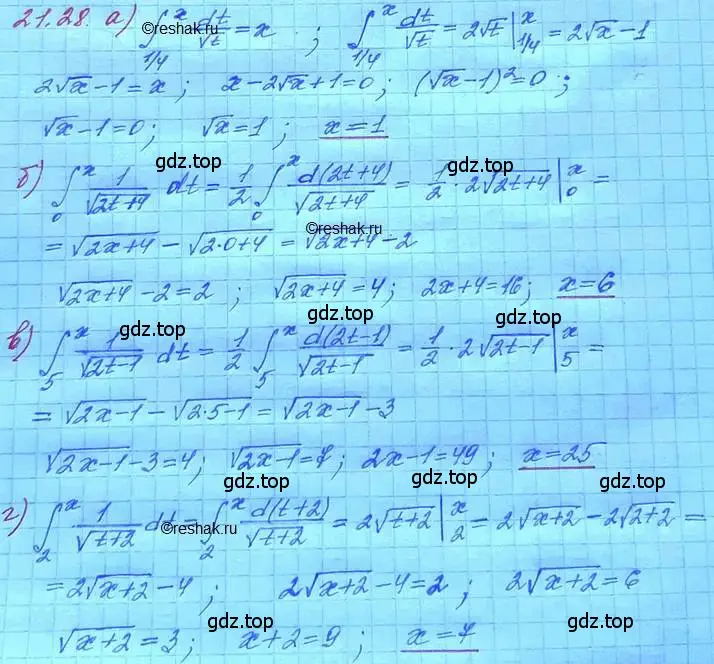 21.28. а) ∫₁/₄ˣ dt/√t = x ; ∫₁/₄ˣ dt/√t = 2√t |₁/₄ˣ = 2√x − 1
©reshak.ru
2√x − 1 = x ; x − 2√x + 1 = 0 ; (√x − 1)² = 0 ;
√x − 1 = 0 ; √x = 1 ; x = 1
gdz.top gdz.top
б) ∫₀ˣ 1/√(2t+4) dt = 1/2 ∫₀ˣ d(2t+4)/√(2t+4) = 1/2 · 2√(2t+4) |₀ˣ =
gdz.top
©reshak.ru
= √(2x+4) − √(2·0+4) = √(2x+4) − 2
√(2x+4) − 2 = 2 ; √(2x+4) = 4 ; 2x+4 = 16 ; x = 6
gdz.top gdz.top
в) ∫₅ˣ 1/√(2t−1) dt = 1/2 ∫₅ˣ d(2t−1)/√(2t−1) = 1/2 · 2√(2t−1) |₅ˣ =
gdz.top
= √(2x−1) − √(2·5−1) = √(2x−1) − 3
√(2x−1) − 3 = 4 ; √(2x−1) = 7 ; 2x−1 = 49 ; x = 25
gdz.top gdz.top gdz.top
г) ∫₂ˣ 1/√(t+2) dt = ∫₂ˣ d(t+2)/√(t+2) = 2√(t+2) |₂ˣ = 2√(x+2) − 2√(2+2) =
©reshak.ru
= 2√(x+2) − 4 ; 2√(x+2) − 4 = 2 ; 2√(x+2) = 6
gdz.top gdz.top
√(x+2) = 3 ; x+2 = 9 ; x = 7
gdz.top